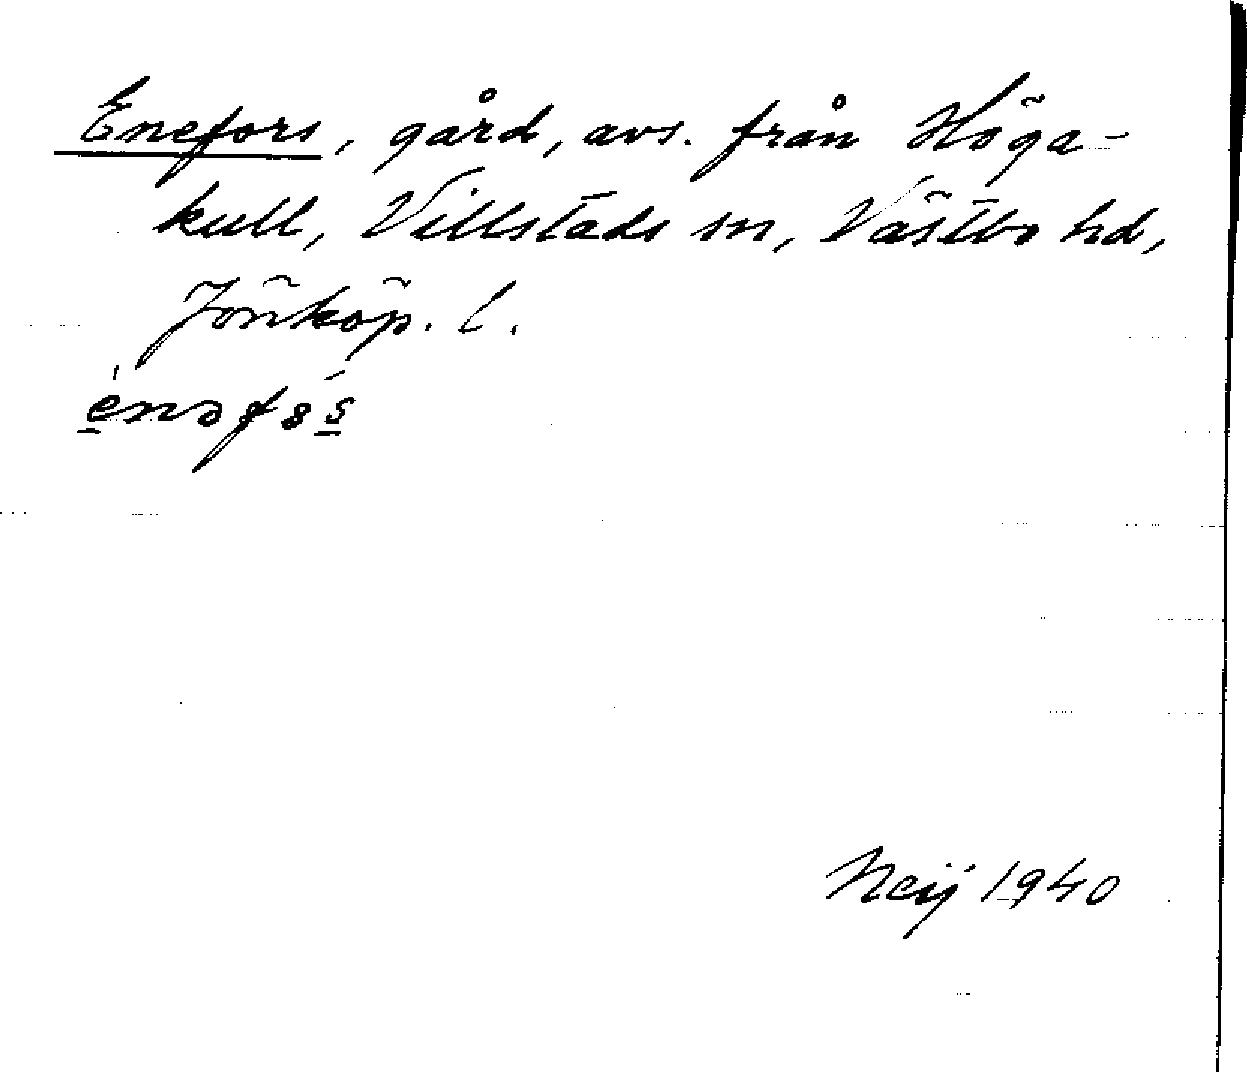 Enefors, gård, avs. från Höga-
kull, Villstads sn, Västbo hd,
Jönköp. l.
Neij 1940